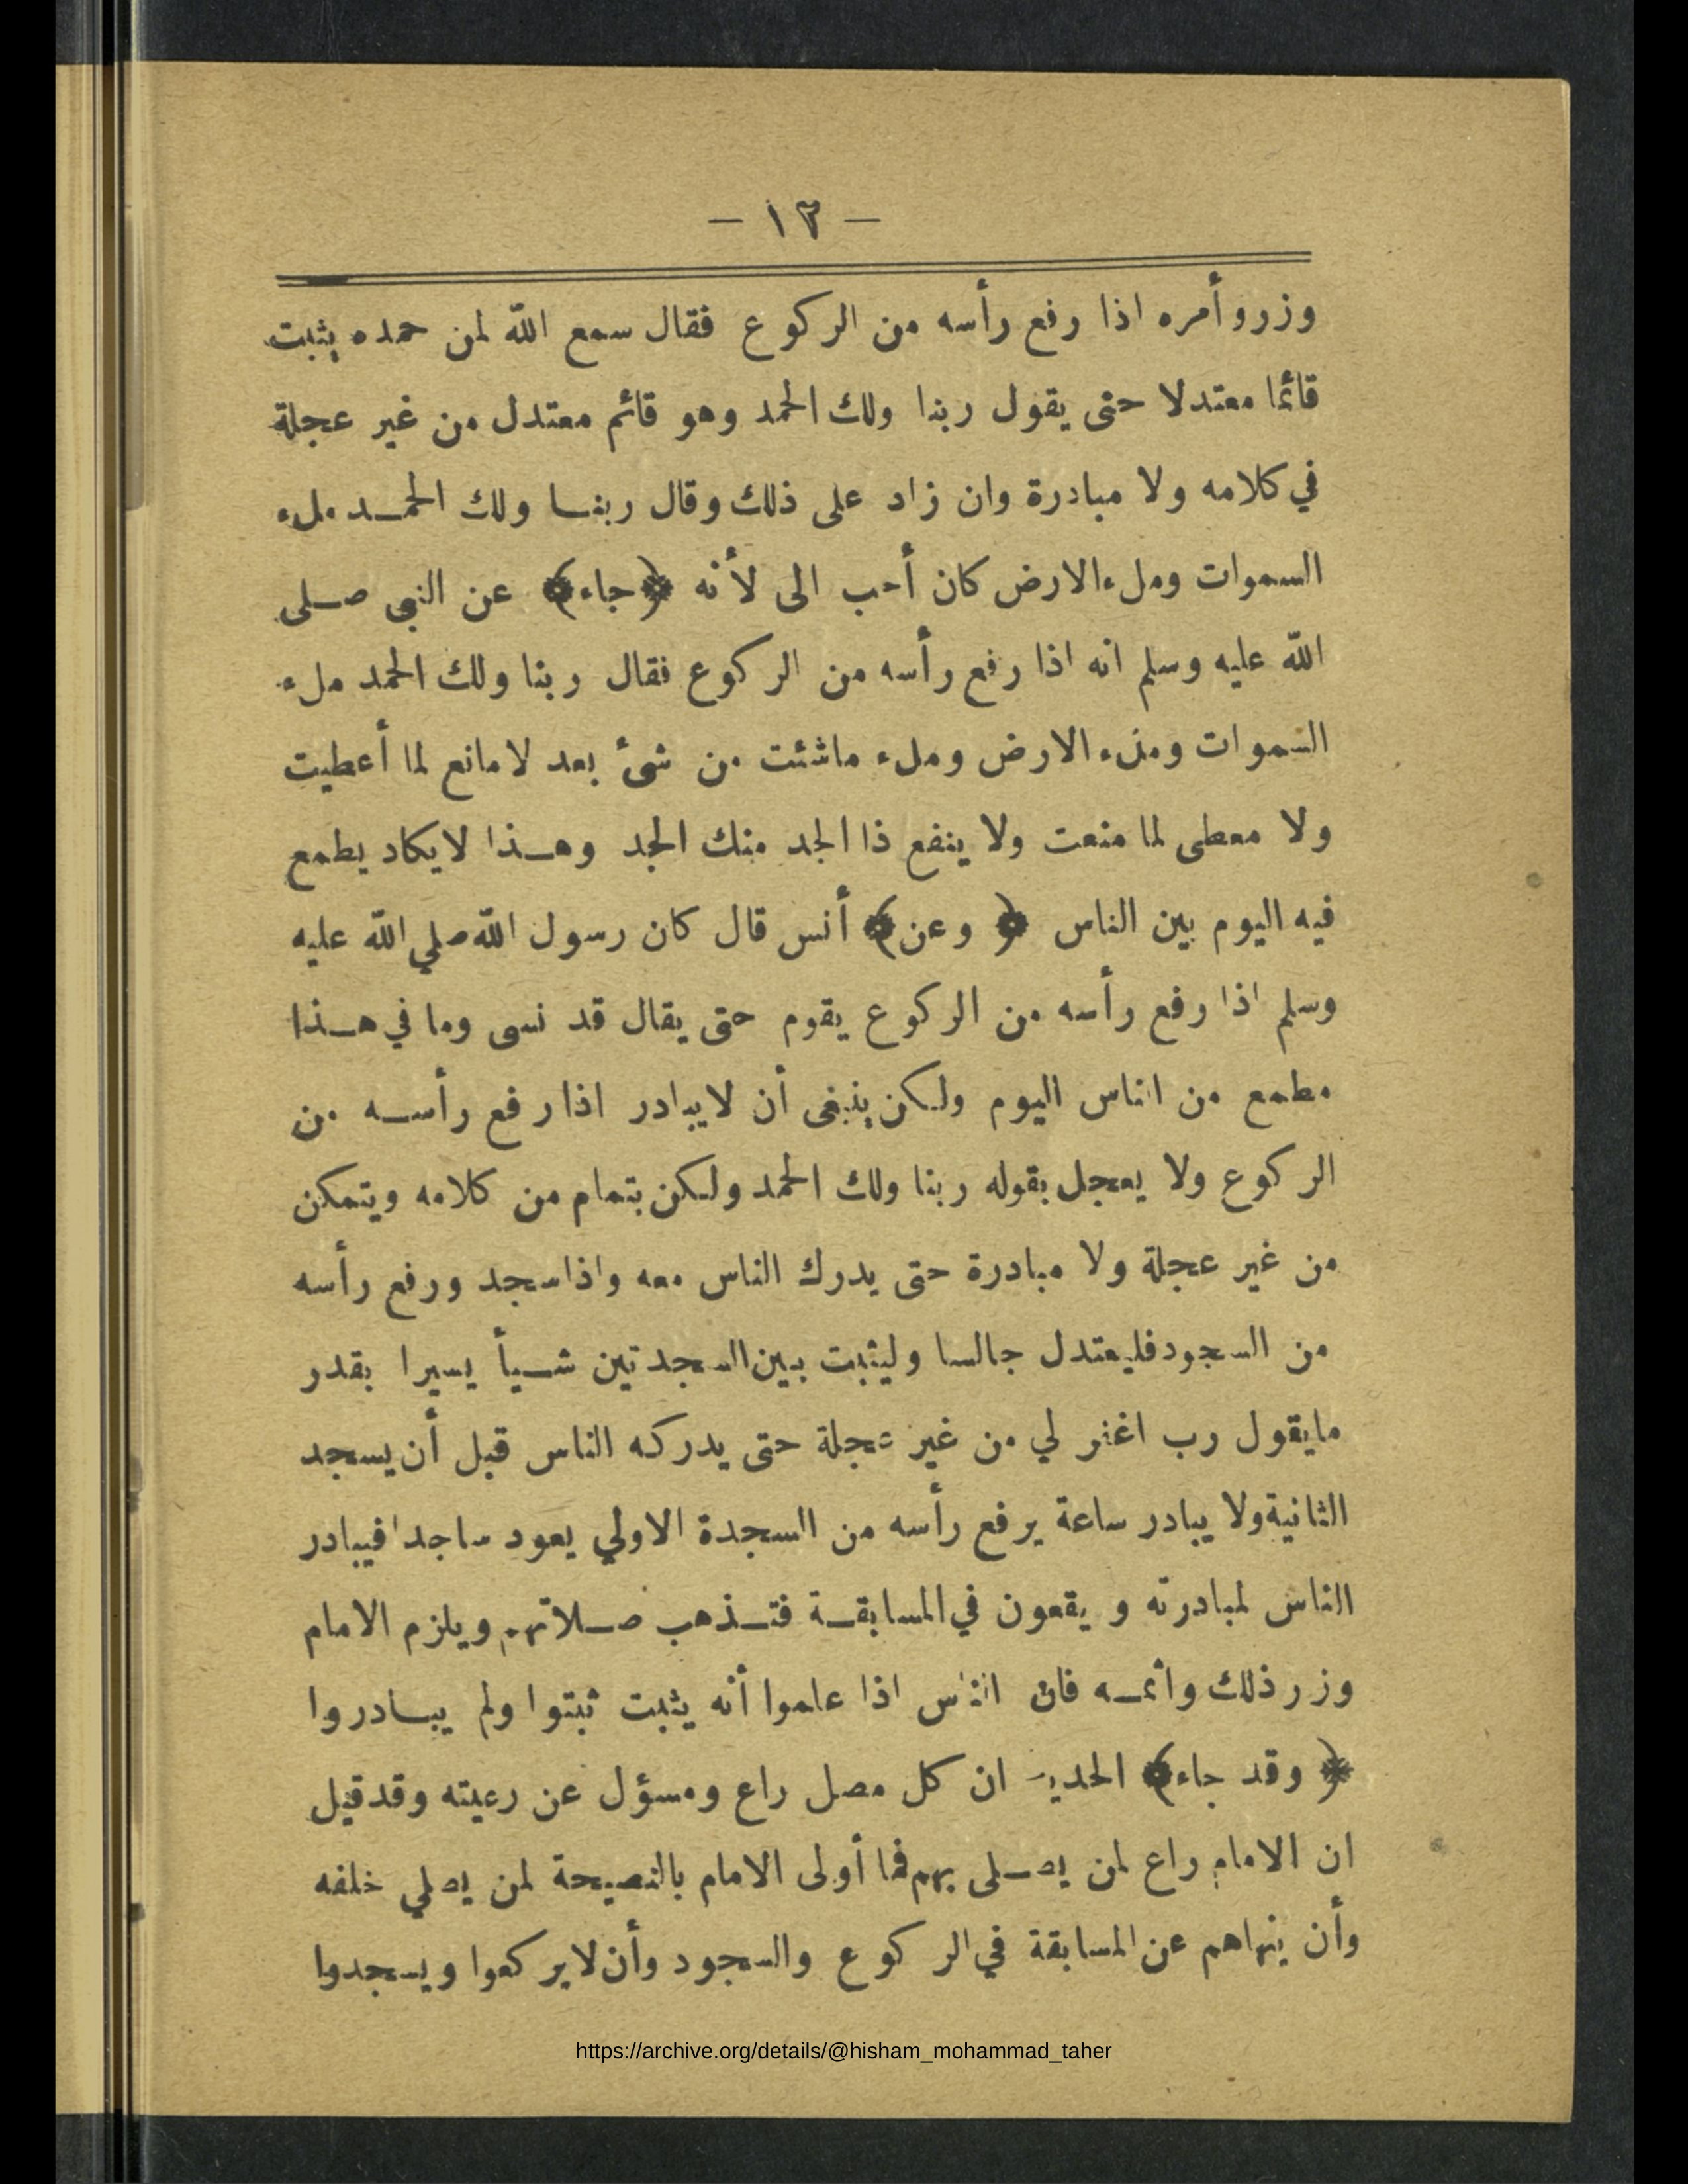 — ١٣ —
وزروأمره اذا رفع رأسه من الركوع فقال سمع الله لمن حمده يثبت
قائما معتدلا حتى يقول ربنا ولك الحمد وهو قائم معتدل من غير عجلة
في كلامه ولا مبادرة وان زاد على ذلك وقال ربنـا ولك الحمـد ملء
السموات وملء الارض كان أحب الى لأنه ﴿جاء﴾ عن النبي صـلى
الله عليه وسلم انه اذا رفع رأسه من الركوع فقال ربنا ولك الحمد ملء
السموات وملء الارض وملء ماشئت من شئ بعد لامانع لما أعطيت
ولا معطى لما منعت ولا ينفع ذا الجد منك الجد وهـذا لايكاد يطمع
فيه اليوم بين الناس ﴿ وعن﴾ أنس قال كان رسول الله صلي الله عليه
وسلم اذا رفع رأسه من الركوع يقوم حتى يقال قد نسى وما في هـذا
مطمع من الناس اليوم ولكن ينبغى أن لايبادر اذا رفع رأسـه من
الركوع ولا يعجل بقوله ربنا ولك الحمد ولكن بتمام من كلامه ويتمكن
من غير عجلة ولا مبادرة حتى يدرك الناس معه واذا سجد ورفع رأسه
من السجود فليعتدل جالسا وليثبت بين السجدتين شـيأ يسيرا بقدر
مايقول رب اغفر لي من غير عجلة حتى يدركه الناس قبل أن يسجد
الثانية ولا يبادر ساعة يرفع رأسه من السجدة الاولي يعود ساجدا فيبادر
الناس لمبادرته و يقعون في المسابقـة فتـذهب صـلاتهم ويلزم الامام
وزر ذلك واثمـه فان الناس اذا علموا أنه يثبت ثبتوا ولم يبـادروا
﴿ وقد جاء﴾ الحديث ان كل مصل راع ومسؤل عن رعيته وقد قيل
ان الامام راع لمن يصـلى بهم فما أولى الامام بالنصيحة لمن يصلي خلفه
وأن ينهاهم عن المسابقة في الركوع والسجود وأن لايركعوا ويسجدوا
https://archive.org/details/@hisham_mohammad_taher